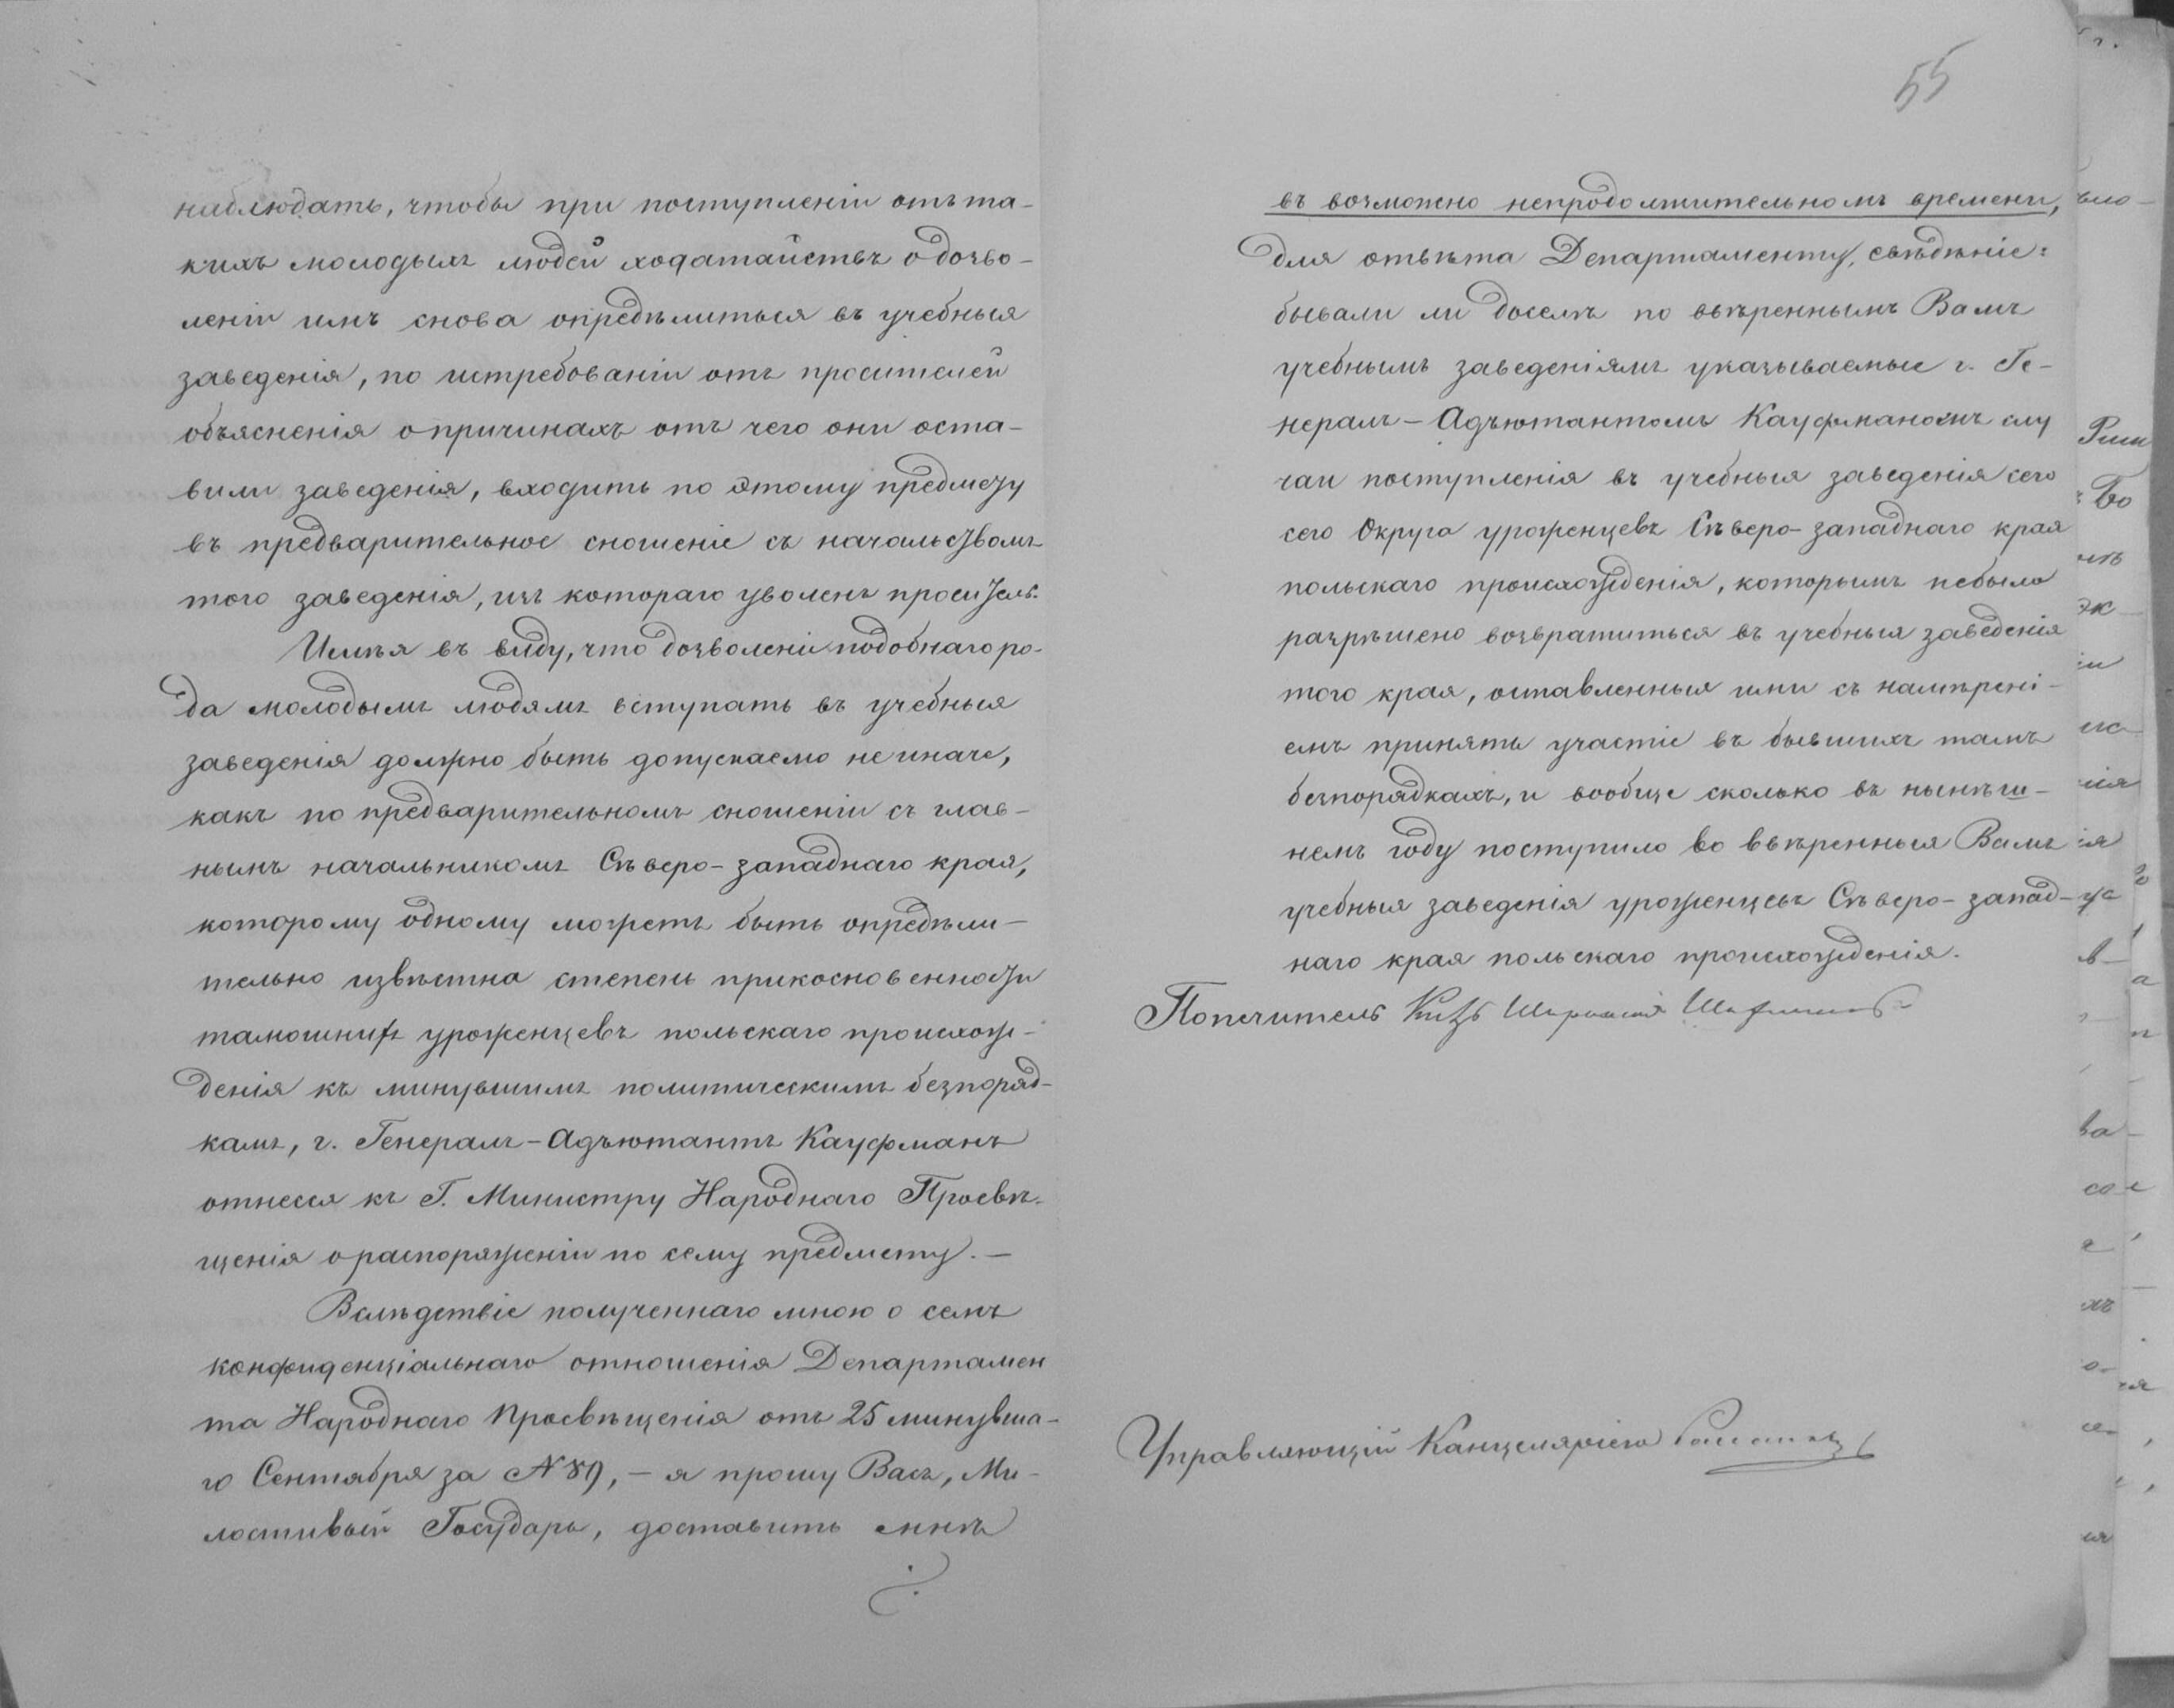 наблюдать, чтобы при поступленіи отъ та-
кихъ молодыхъ людей ходатайствъ о дозво-
леніи имъ снова опредѣлиться въ учебныя
заведенія, по истребованіи отъ просителей
объясненія о причинахъ отъ чего они оста-
вили заведенія, входить по этому предмету
въ предварительное сношеніе съ начальствомъ
того заведенія, изъ котораго уволенъ проситель.
Имѣя въ виду, что дозволеніи подобнаго ро-
да молодымъ людямъ вступать въ учебныя
заведенія должно быть допускаемо не иначе,
какъ по предварительномъ сношеніи съ глав-
нымъ начальникомъ Сѣверо-западнаго края,
которому одному можетъ быть опредѣли-
тельно извѣстна степень прикосновенности
тамошнихъ уроженцевъ польскаго происхож-
денія къ минувшимъ политическимъ безпоряд-
камъ, г. Генералъ-Адъютантъ Кауфманъ
отнесся къ Г. Министру Народнаго Просвѣ-
щенія о распоряженіи по сему предмету. —
Вслѣдствіе полученнаго мною о семъ
конфиденціальнаго отношенія Департамен
та Народнаго Просвѣщенія отъ 25 минувша-
го Сентября за № 89, — я прошу Васъ, Ми-
лостивый Государь, доставить мнѣ
55
въ возможно непродолжительномъ времени,
для отвѣта Департаменту, свѣдѣніе:
бывали ли доселѣ по ввѣреннымъ Вамъ
учебнымъ заведеніямъ указываемые г. Ге-
нералъ-Адъютантомъ Кауфманомъ слу
чаи поступленія въ учебныя заведенія сего
сего Округа уроженцевъ Сѣверо-западнаго края
польскаго происхожденія, которымъ небыло
разрѣшено возвратиться въ учебныя заведенія
того края, оставленныя ими съ намѣрені-
емъ принять участіе въ бывшихъ тамъ
безпорядкахъ, и вообще сколько въ нынѣш-
немъ году поступило во ввѣренныя Вамъ
учебныя заведенія уроженцевъ Сѣверо-запад-
наго края польскаго происхожденія.
Попечитель Князь
Управляющій Канцеляріею